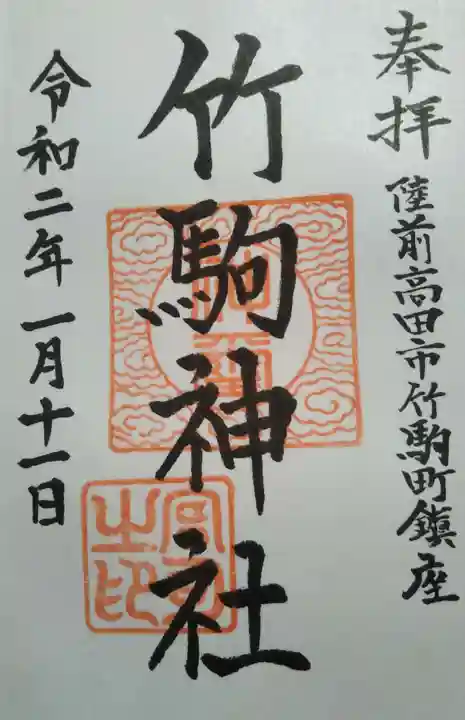 奉拝
陸前高田市竹駒町鎮座
竹駒神社
令和二年一月十一日